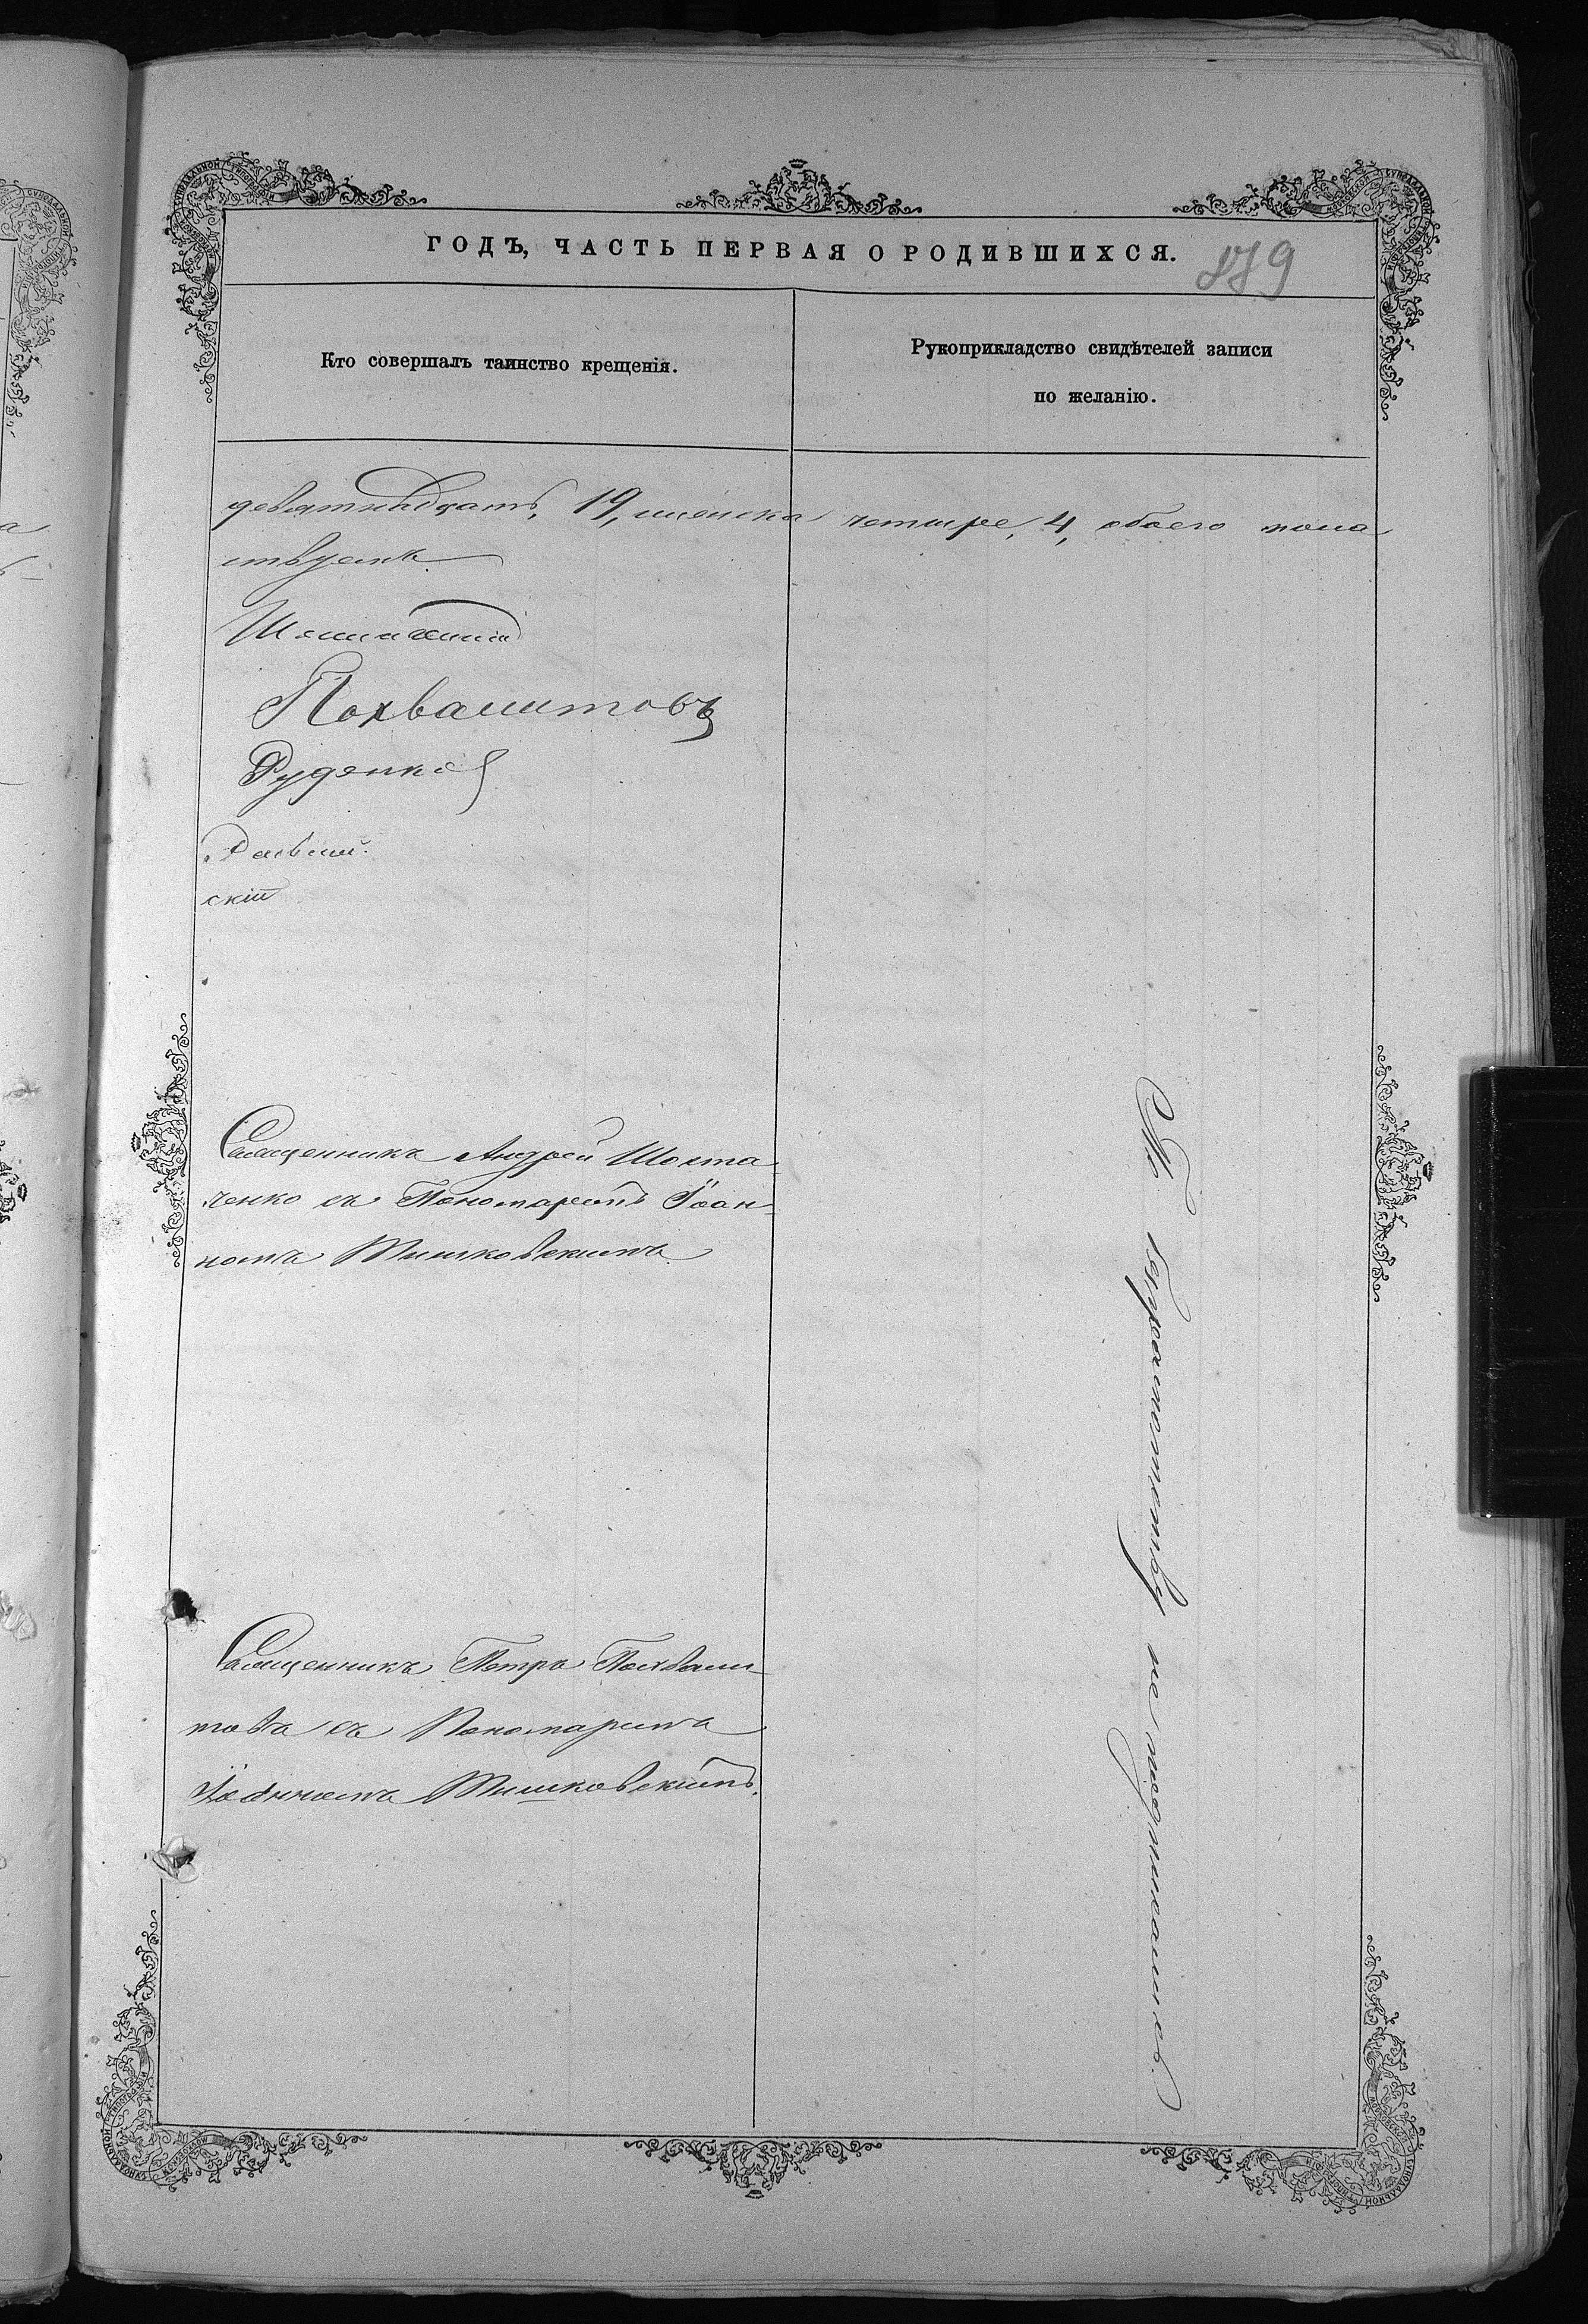 ГОДЪ, ЧАСТЬ ПЕРВАЯ О РОДИВШИХСЯ.
179
Кто совершалъ таинство крещенія.
Рукоприкладство свидѣтелей записи
по желанію.
девятнадцать, 19, женска четыре, 4, обоего пола
ствуемъ
Похвалитовъ
Руденко
скій
Священникъ Андрей Шоста
ченко съ Пономаремъ Іоан-
номъ Тишковскимъ.
Священникъ Петръ Похвали-
товъ съ Пономаремъ
Іоанномъ Тишковскимъ.
По безграмотству не подписались.